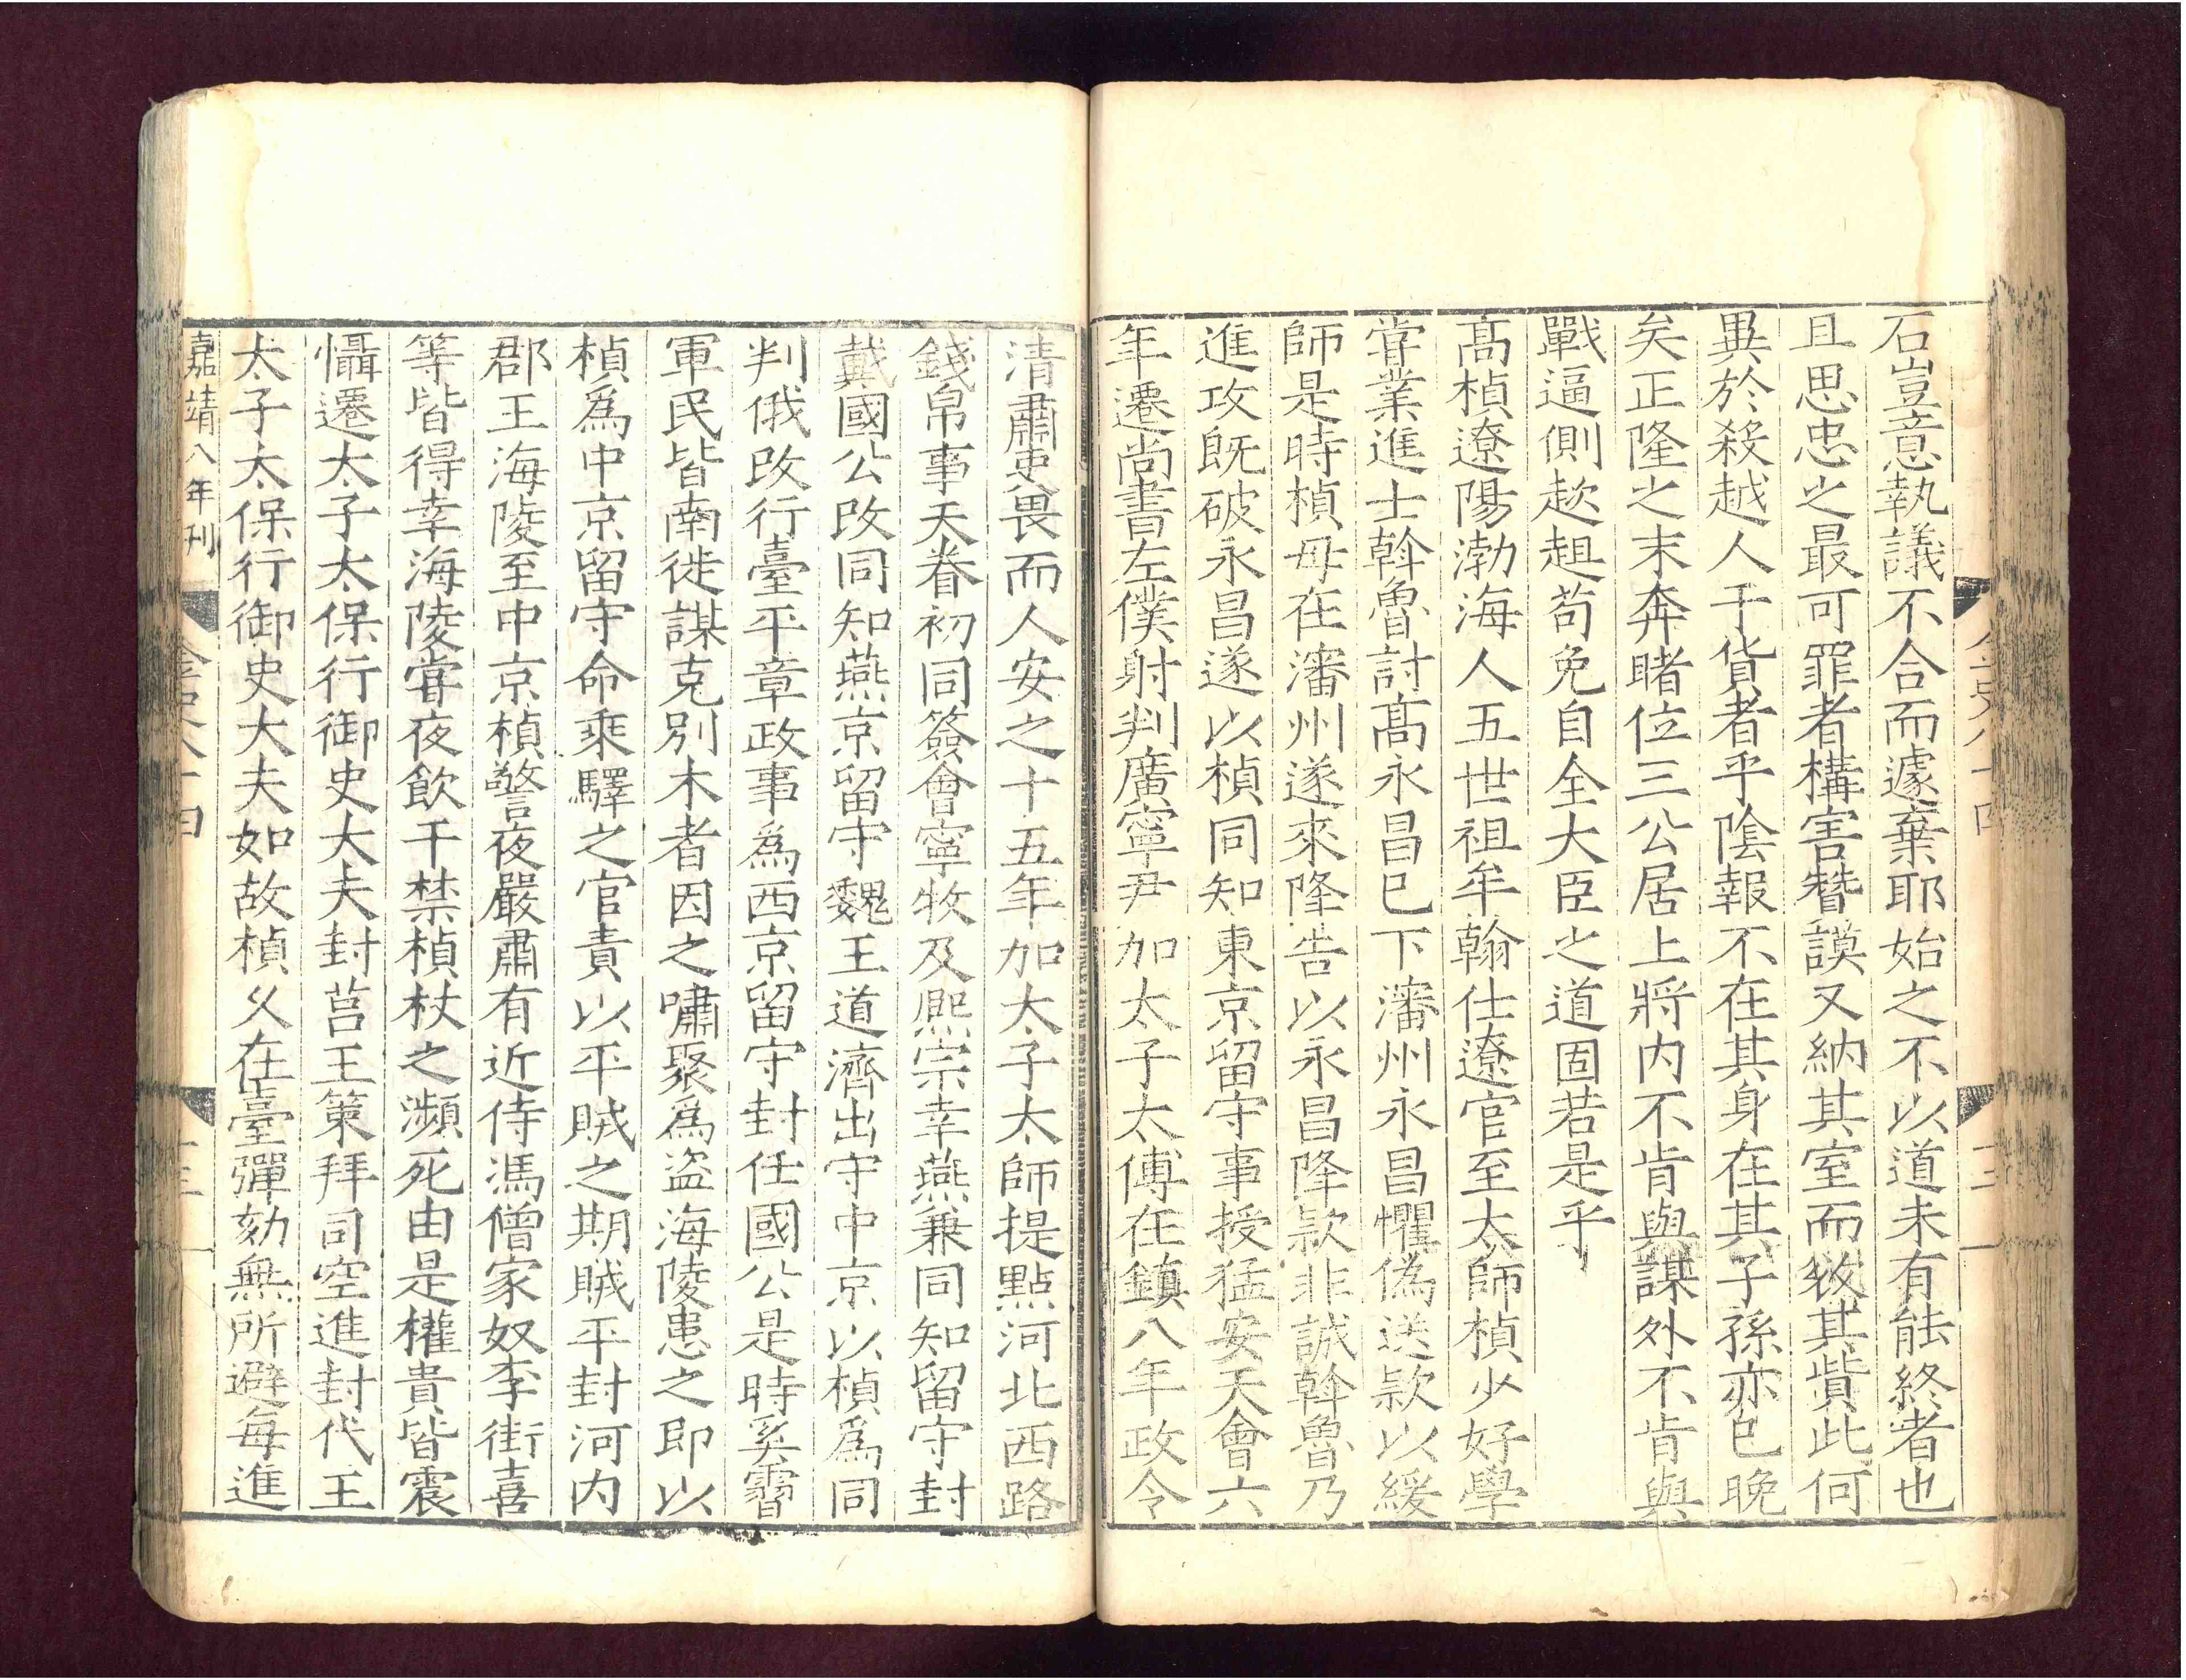 石豈意執議不合而遽棄耶始之不以道未有能終者也
且思忠之最可罪者構害贊謨又納其室而斂其貲此何
異於殺越人于貨者乎陰報不在其身在其子孫亦已晚
矣正隆之末奔睹位三公居上將内不肯與謀外不肯與
戰逼側趑趄茍免自全大臣之道固若是乎
髙楨遼陽渤海人五世祖牟翰仕遼官至太師楨少好學
嘗業進士斡魯討髙永昌已下瀋州永昌懼偽送欵以緩
師是時楨母在瀋州遂來降告以永昌降欵非誠斡魯乃
進攻既破永昌遂以楨同知東京留守事授猛安天會六
年遷尚書左僕射判廣寧尹加太子太傅在鎮八年政令
清肅吏畏而人安之十五年加太子太師提點河北西路
錢帛事天眷初同簽會寧牧及熈宗幸燕兼同知留守封
戴國公改同知燕京留守魏王道濟出守中京以楨爲同
判俄改行臺平章政事爲西京留守封任國公是時奚霫
軍民皆南徙謀克别木者因之嘯聚爲盜海陵患之即以
楨爲中京留守命乘驛之官責以平賊之期賊平封河内
郡王海陵至中京楨警夜嚴肅有近侍馮僧家奴李街喜
等皆得幸海陵嘗夜飲干禁楨杖之瀕死由是權貴皆震
懾遷太子太保行御史大夫封莒王策拜司空進封代王
太子太保行御史大夫如故楨父在臺彈劾無所避每進
嘉靖八年刊
金史八十四
十三